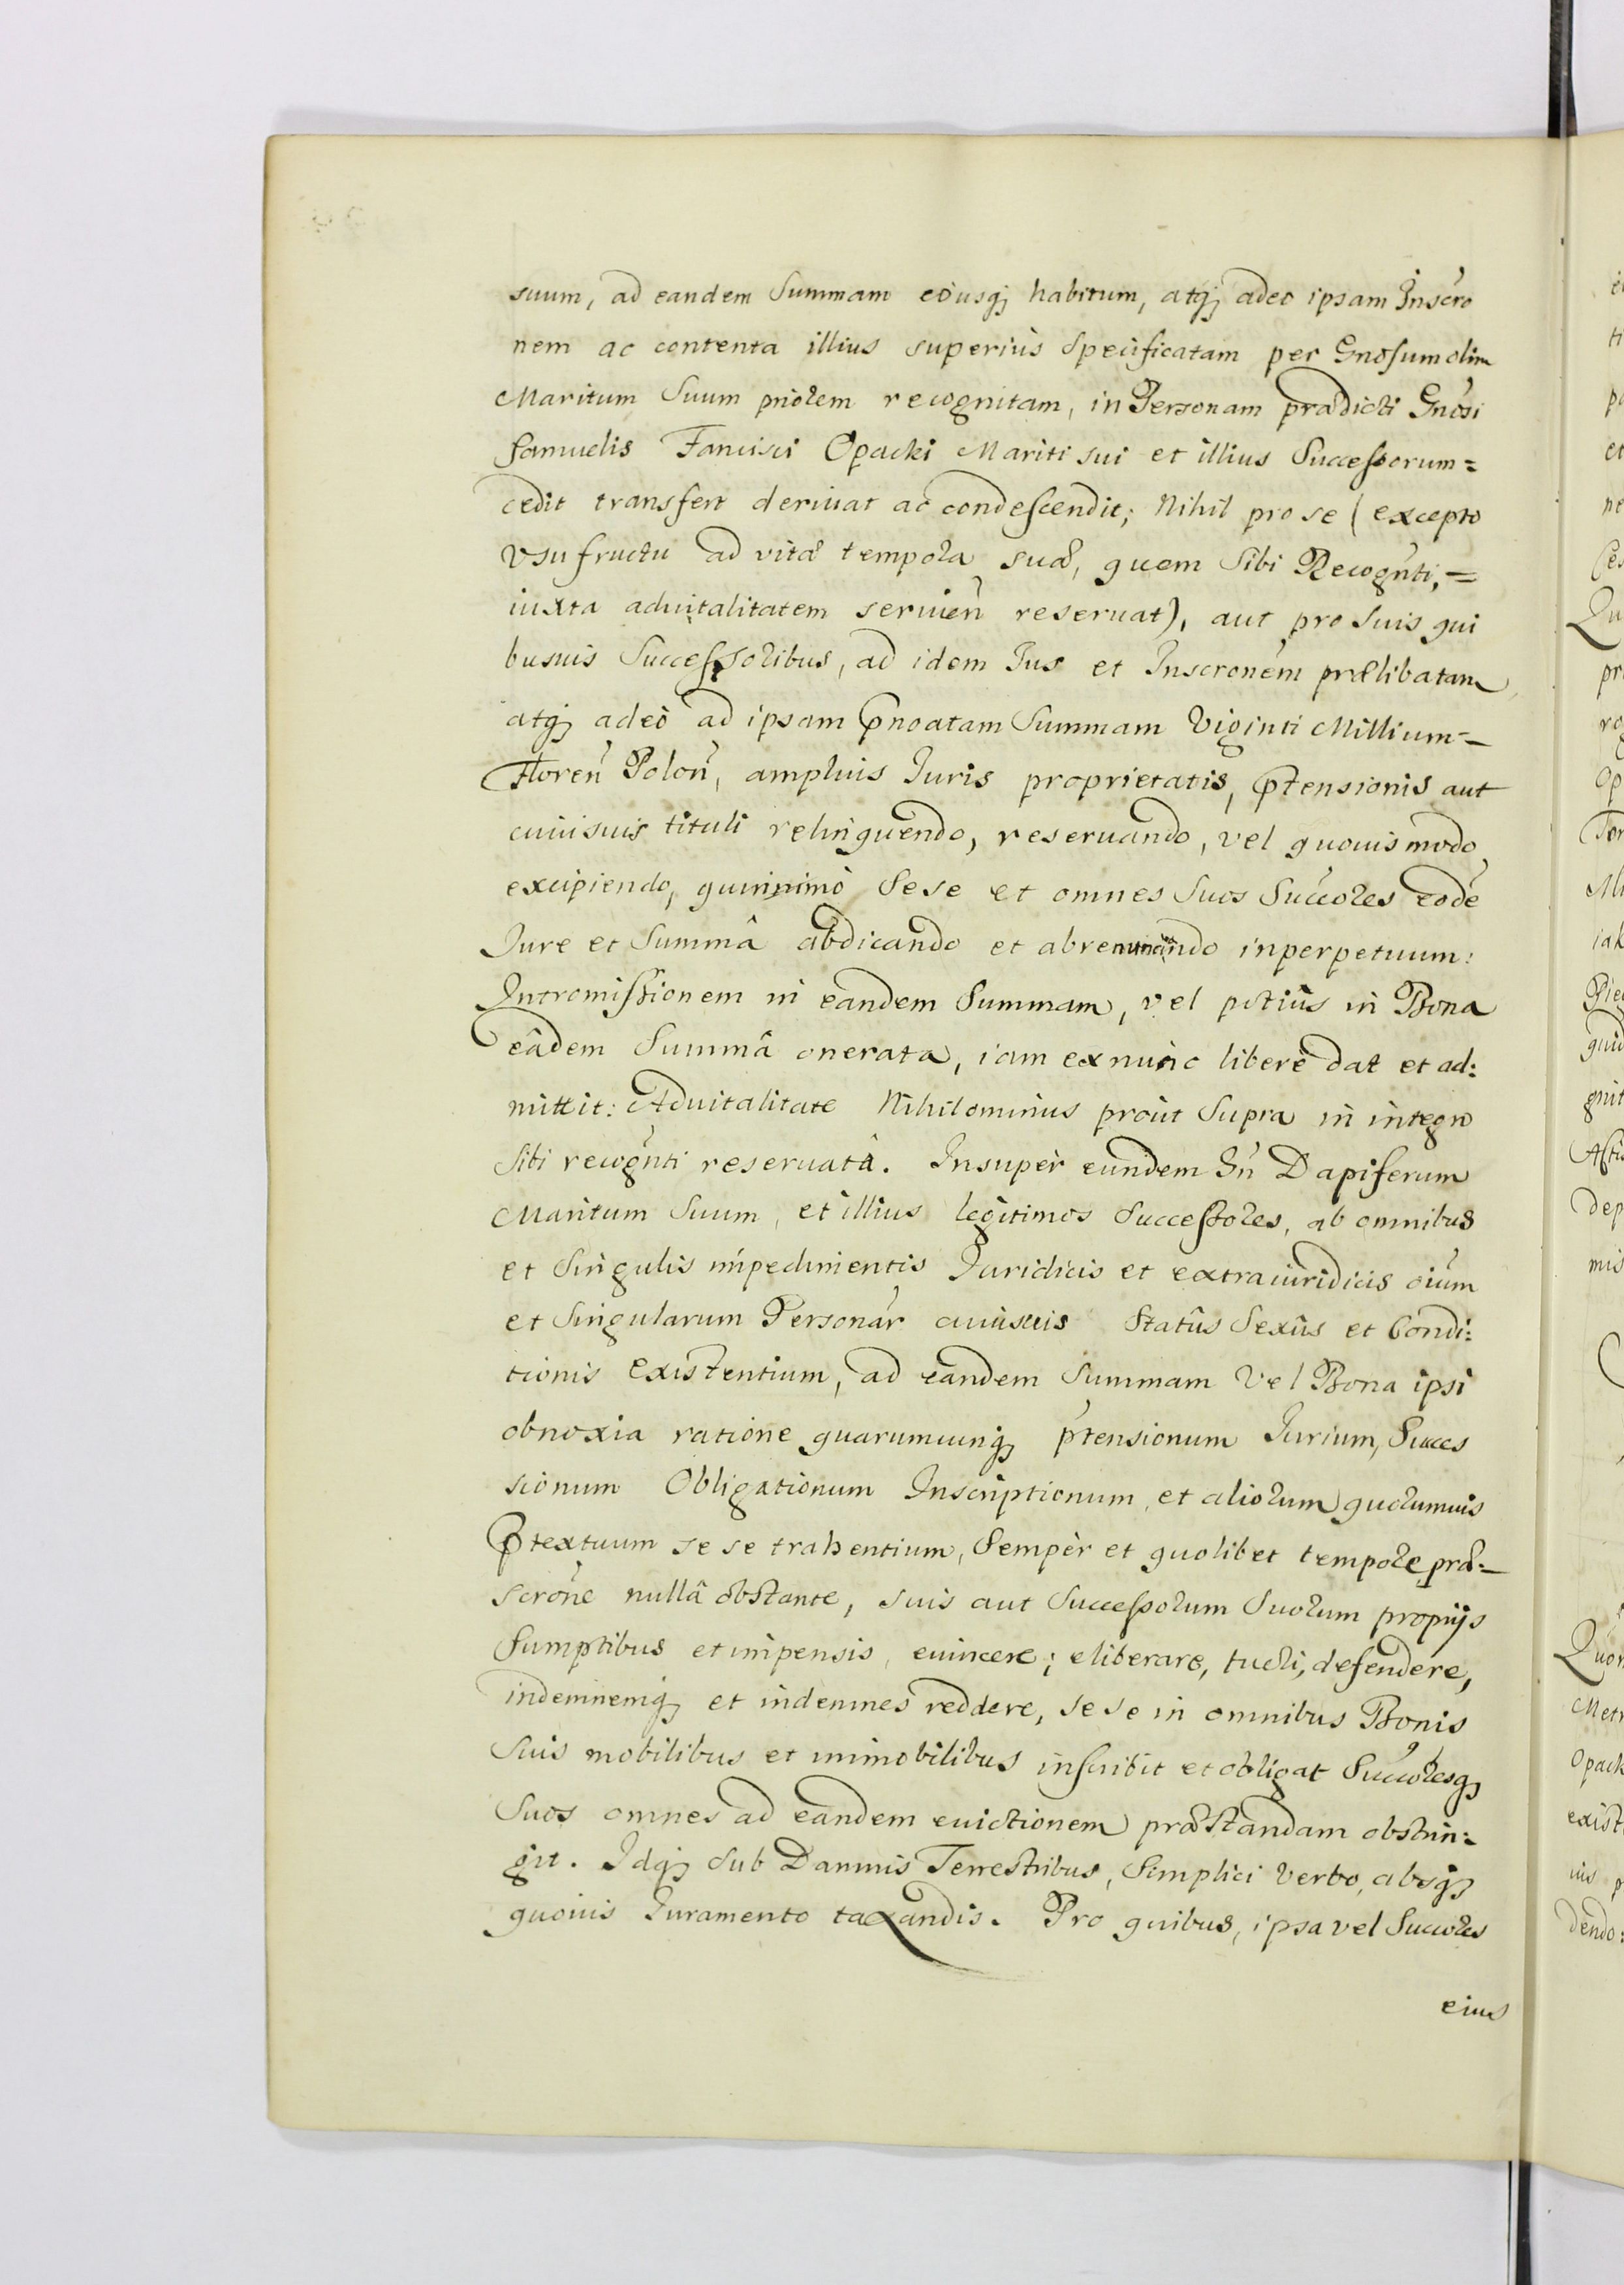 suum, ad eandem Summam eousq; habitum, atq; adeo ipsam Inscro
nem ac contenta illius superiùs Specificatam per Gnosum olim
Maritum Suum priorem recognitam, in Personam prædicti Gnosi
Samuelis Fancisci Opacki Mariti sui et illius Successorum=
cedit transfert deriuat ac condescendit; Nihil pro se (excepto
vsufructu ad vitæ tempora suæ, quem Sibi Recognti,=
iuxta aduitalitatem seruien̄ reseruat), aut pro Suis qui
busuis Successoribus, ad idem Jus et Inscronem prælibatam
atq; adeò ad ipsam pnoatam Summam Viginti Millium=
Floren̄ Polon̄, ampluis Juris proprietatis, ptensionis aut
cuiuisuis tituli relinquendo, reseruando, vel quouis modo
excipiendo, quinimò Sese et omnes Suos Succores eodē
Jure et Summâ abdicando et abrenunciando inperpetuum:
Intromissionem in eandem Summam, vel potiùs in Bona
eâdem Summâ onerata, iam ex nunc liberè dat et ad:
mittit: Aduitalitate Nihilominus proùt Supra in integro
Sibi recognti reseruatâ. Insupèr eundem Gn̄ Dapiferum
Maritum Suum, et illius legitimos Successores, ab omnibus
et Singulis impedimentis Juridicis et extraiuridicis oium
et Singularum Personar cuiusuis Statûs Sexûs et Condi:
tionis existentium, ad eandem Summam Vel Bona ipsi
obnoxia ratione quarumcunq; ptensionum Jurium, Succes
sionum Obligationum Inscriptionum, et aliorum quorumuis
ptextuum se se trahentium, Sempèr et quolibet tempore præ:
scrone nullâ obstante, suis aut Successorum Suorum propiijs
Sumptibus et impensis, euincere, eliberare, tueri, defendere,
indemnemq; et indemnes reddere, se se in omnibus Bonis
Suis mobilibus et immobilibus inscribit et obligat Succoresq;
Suos omnes ad eandem euictionem præstandam obstrin:
git. Idq; Sub Damnis Terrestribus, Simplici Verbo, absq;
quouis Juramento taxandis. Pro quibus, ipsa vel Succores
eius